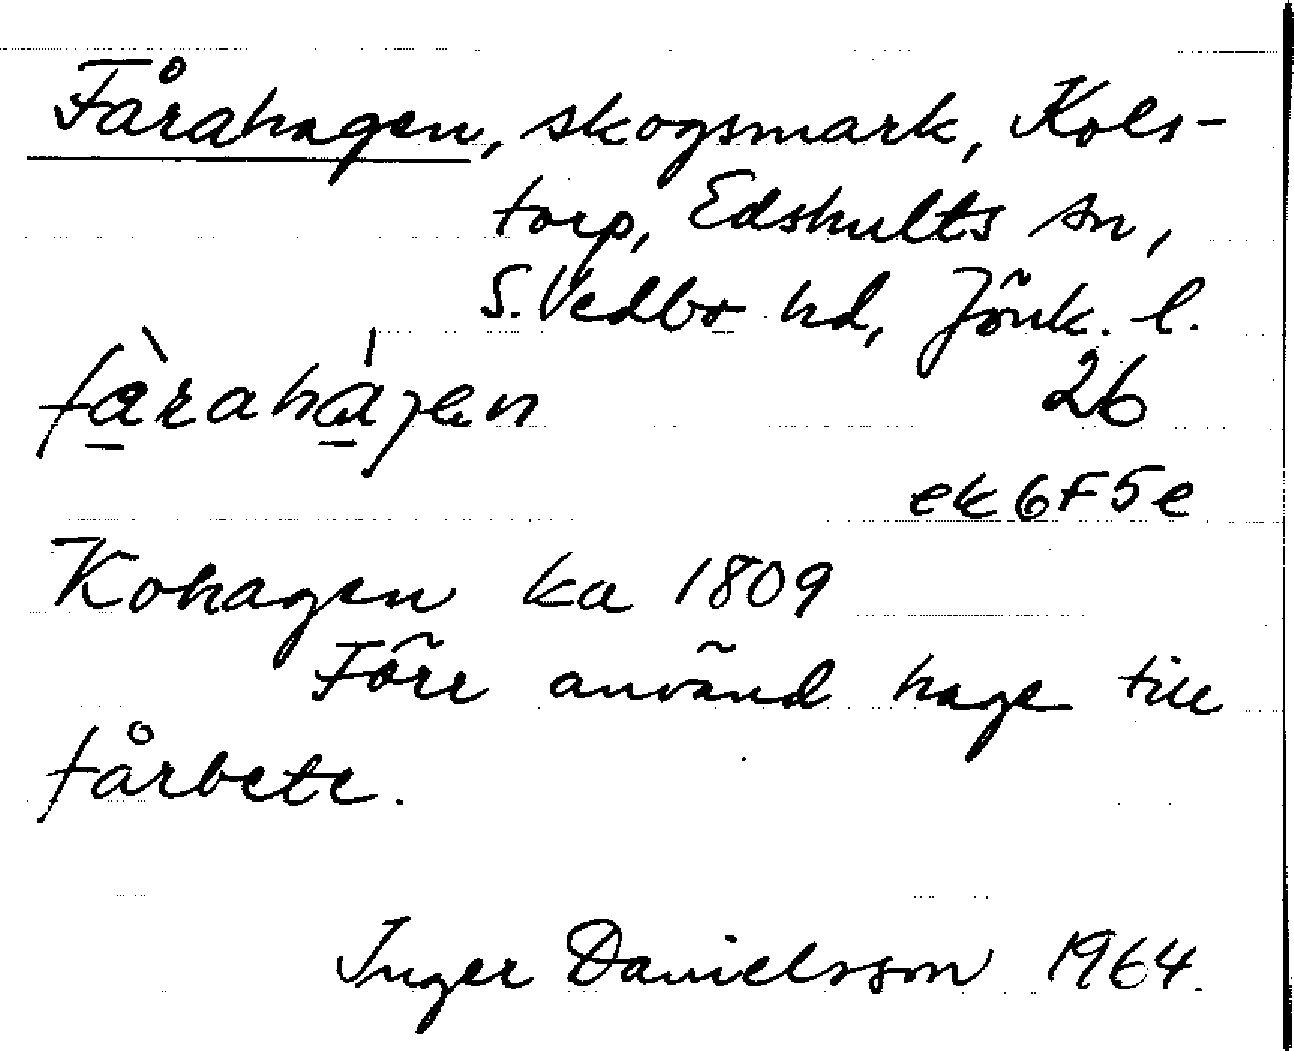 Fårahagen, skogsmark, Kols-
torp, Edshults sn,
S. Vedbo hd, Jönk. l.
fàrahájen 26
ek 6F5e
Kohagen ka 1809
Förr använd hage till
fårbete.
Inger Danielsson 1964.